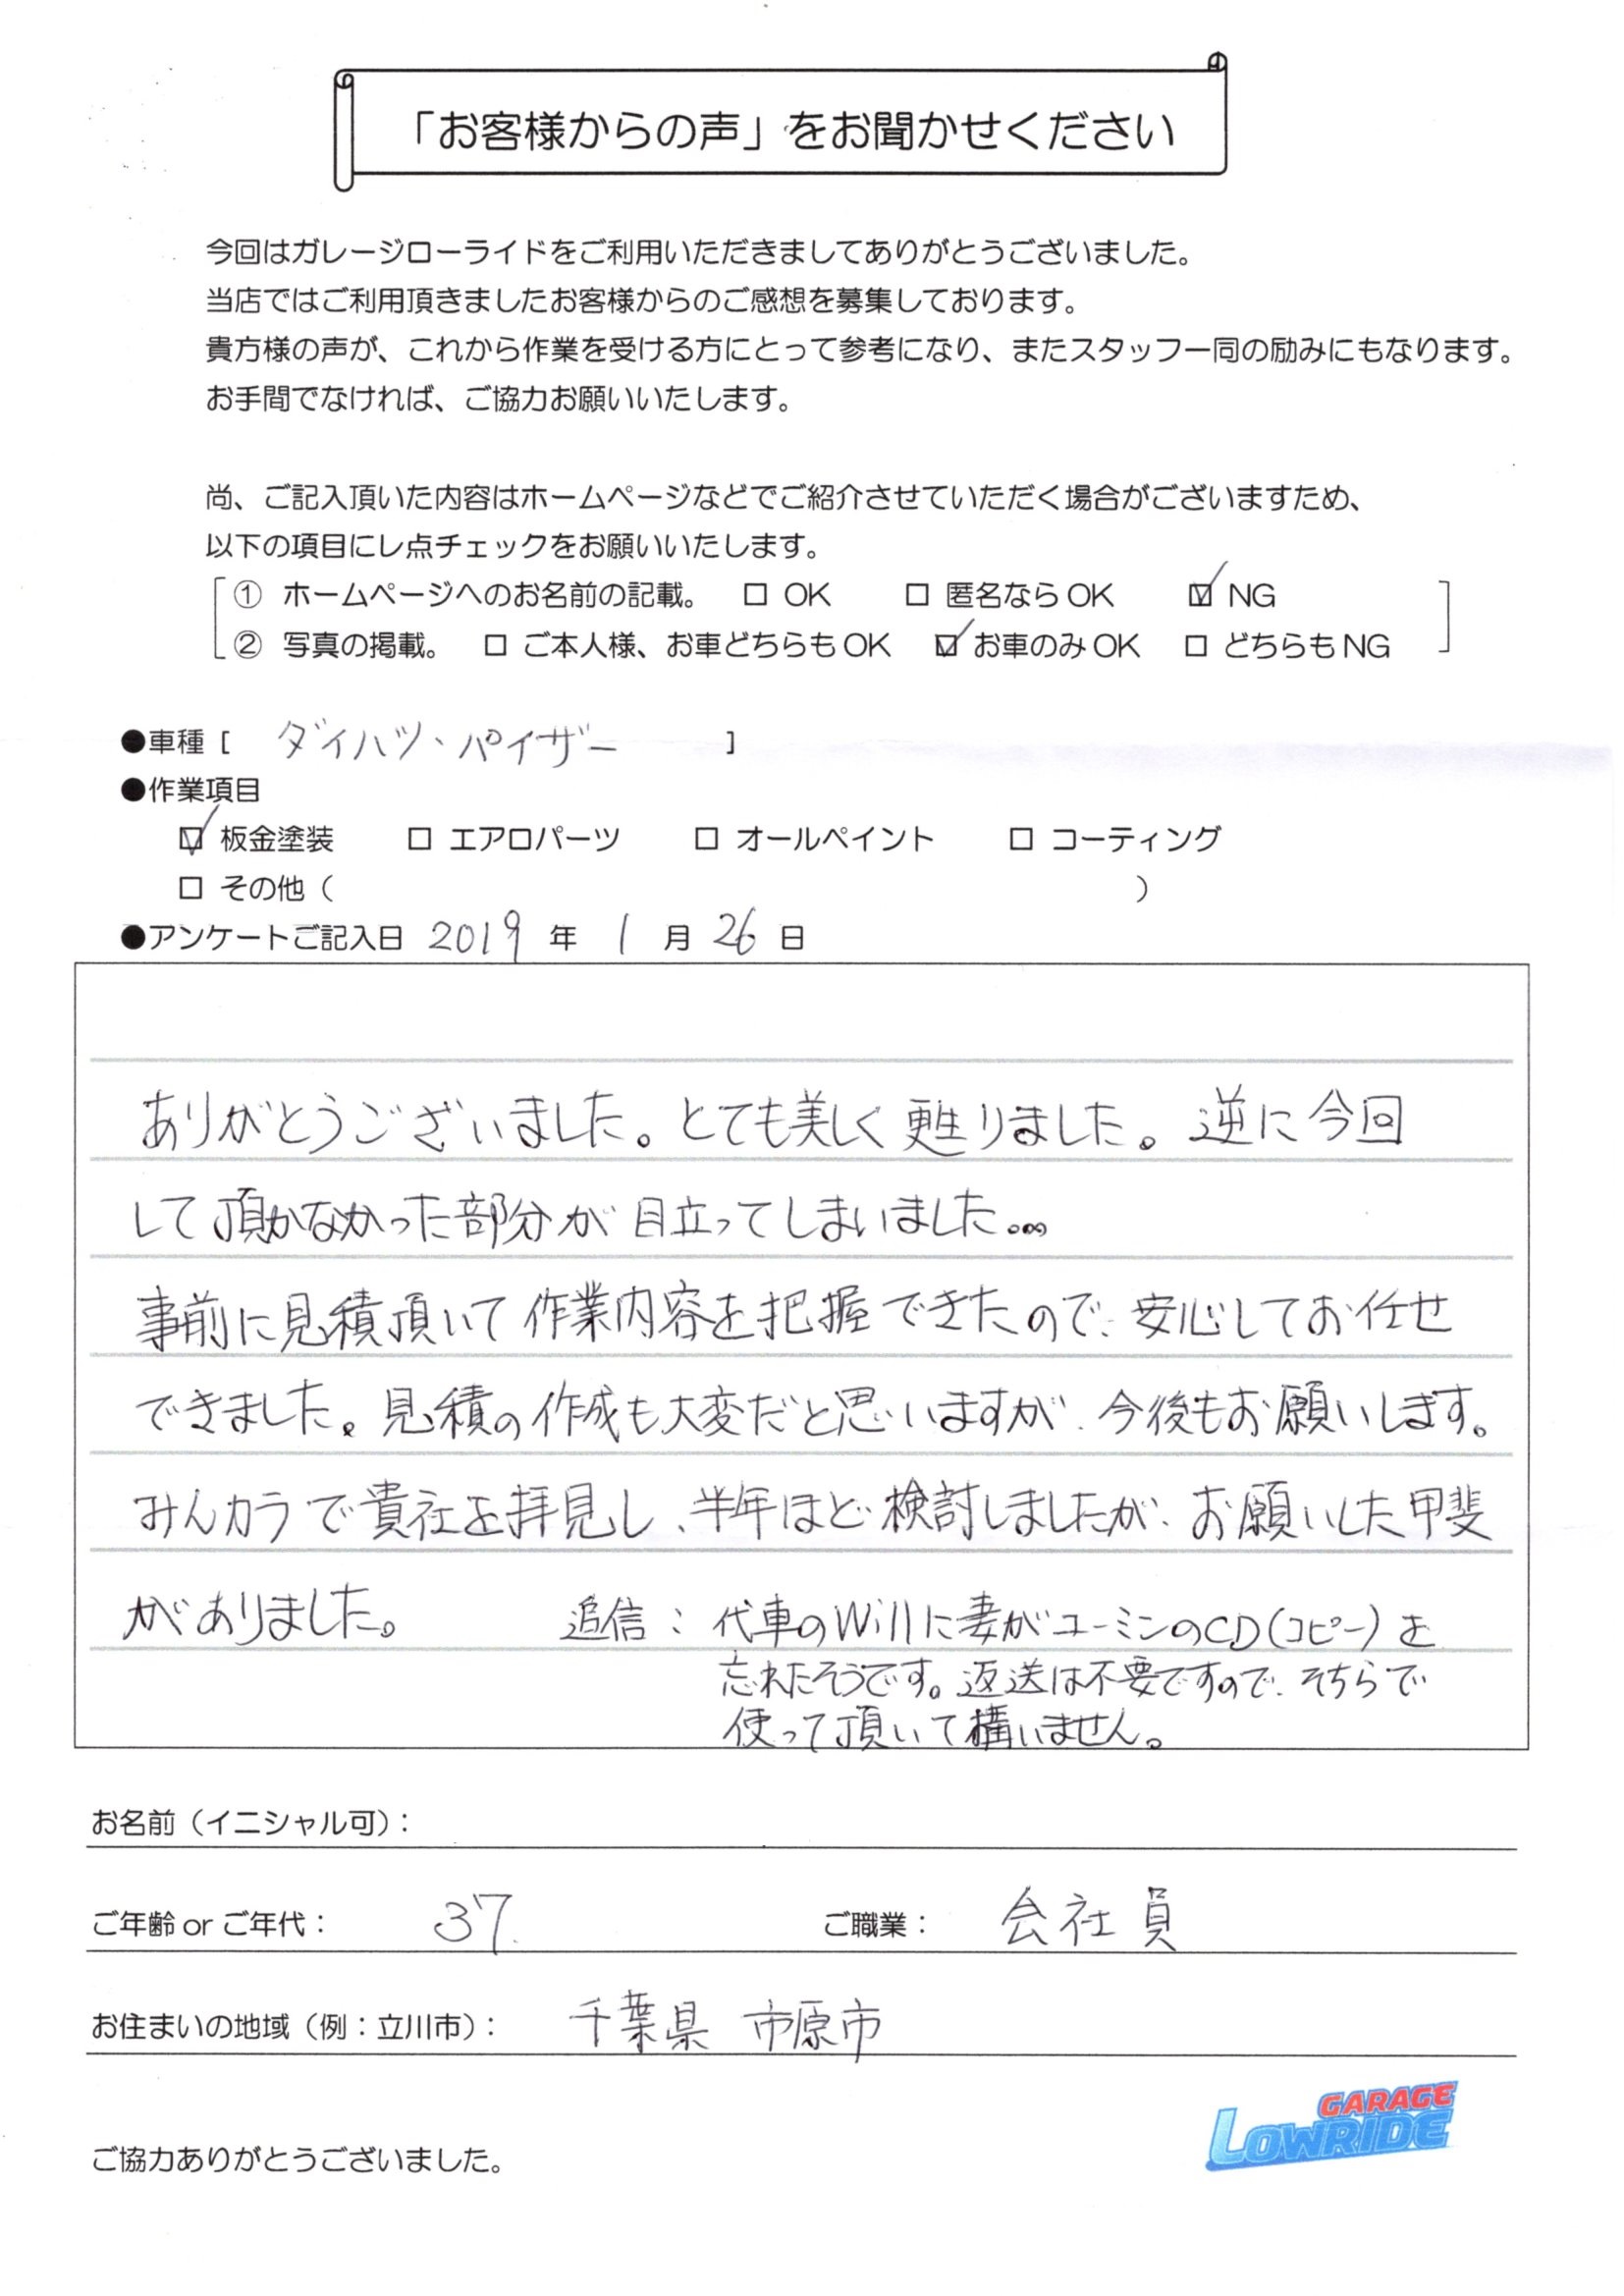 「お客様からの声」をお聞かせください
今回はガレージローライドをご利用いただきましてありがとうございました。
当店ではご利用頂きましたお客様からのご感想を募集しております。
貴方様の声が、これから作業を受ける方にとって参考になり、またスタッフ一同の励みにもなります。
お手間でなければ、ご協力お願いいたします。
尚、ご記入頂いた内容はホームページなどでご紹介させていただく場合がございますため、
以下の項目にレ点チェックをお願いいたします。
① ホームページへのお名前の記載。 □ OK □ 匿名ならOK ☑ NG
② 写真の掲載。 □ ご本人様、お車どちらもOK ☑ お車のみOK □ どちらもNG
●車種 [ ダイハツ・パイザー ]
●作業項目
☑ 板金塗装 □ エアロパーツ □ オールペイント □ コーティング
□ その他（ ）
●アンケートご記入日 2019 年 1 月 26 日
ありがとうございました。とても美しく甦りました。逆に今回
して頂かなかった部分が目立ってしまいました…
事前に見積頂いて作業内容を把握できたので、安心してお任せ
できました。見積の作成も大変だと思いますが、今後もお願いします。
みんカラで貴社を拝見し、半年ほど検討しましたが、お願いした甲斐
がありました。 追信：代車のWillに妻がユーミンのCD(コピー)を
忘れたそうです。返送は不要ですので、そちらで
使って頂いて構いません。
お名前（イニシャル可）：
ご年齢 or ご年代： 37 ご職業： 会社員
お住まいの地域（例：立川市）： 千葉県 市原市
GARAGE
LOWRIDE
ご協力ありがとうございました。